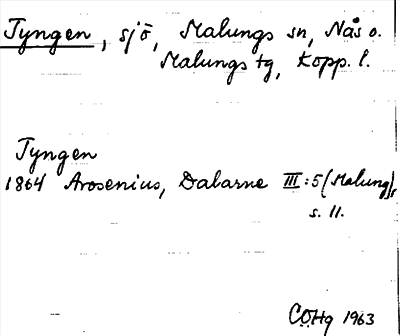 Tyngen, sjö, Malungs sn, Nås o.
Malungs tg, Kopp. l.
Tyngen
1864 Arosenius, Dalarne III:5 (Malung),
s. 11.
COHg 1963